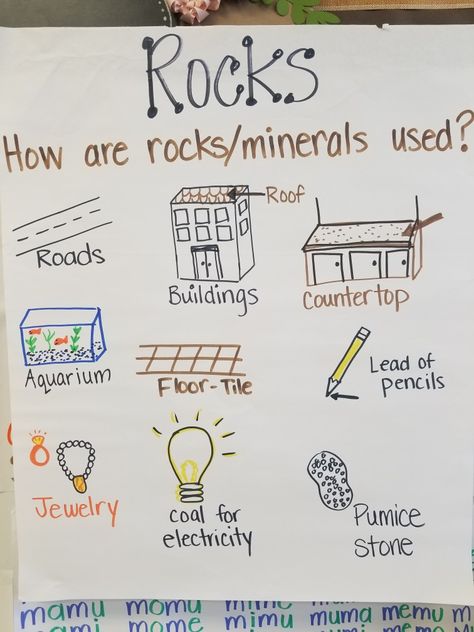 Rocks
How are rocks/minerals used?
Roof
Roads
Buildings
Countertop
Aquarium
Floor-Tile
Lead of
pencils
Jewelry
coal for
electricity
Pumice
stone
mamu momu mimu muma memu
mome mimu mumo